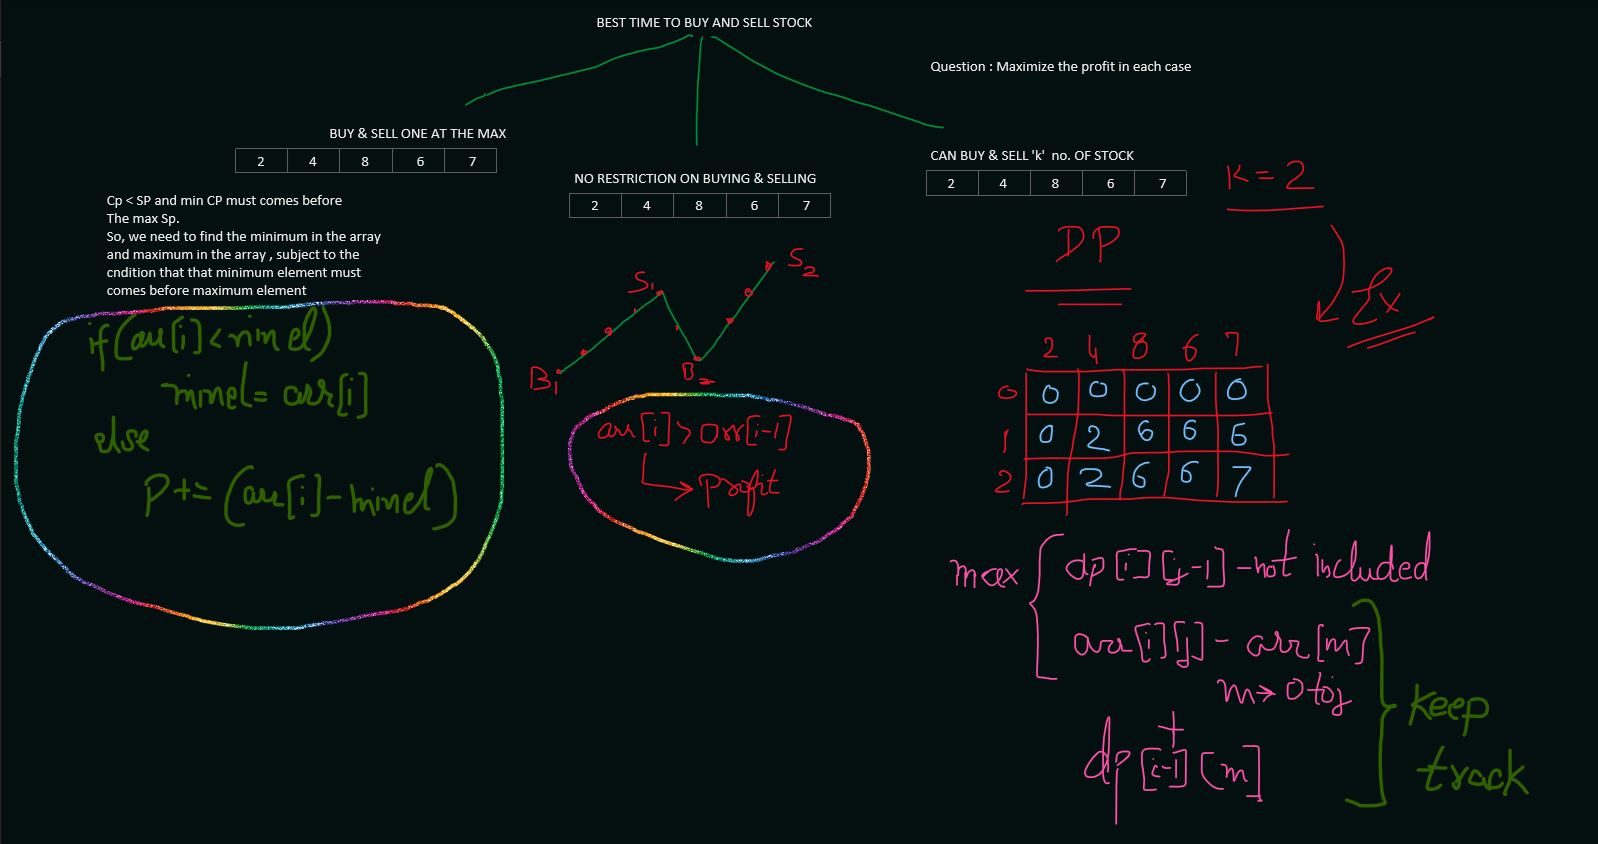 BEST TIME TO BUY AND SELL STOCK
Question : Maximize the profit in each case
BUY & SELL ONE AT THE MAX
2 4 8 6 7
Cp < SP and min CP must comes before
The max Sp.
So, we need to find the minimum in the array
and maximum in the array , subject to the
cndition that that minimum element must
comes before maximum element
if(arr[i]<minel)
minel= arr[i]
else
P+=(arr[i]-minel)
NO RESTRICTION ON BUYING & SELLING
2 4 8 6 7
S1
S2
B1
B2
arr[i]>arr[i-1]
profit
CAN BUY & SELL 'k' no. OF STOCK
2 4 8 6 7
K=2
DP
Ex
2 4 8 6 7
0 0 0 0 0 0
1 0 2 6 6 6
2 0 2 6 6 7
max
dp[i][j-1] -not included
arr[i][j]- arr[m]
m→0 to j
+
dp[i-1][m]
keep
track